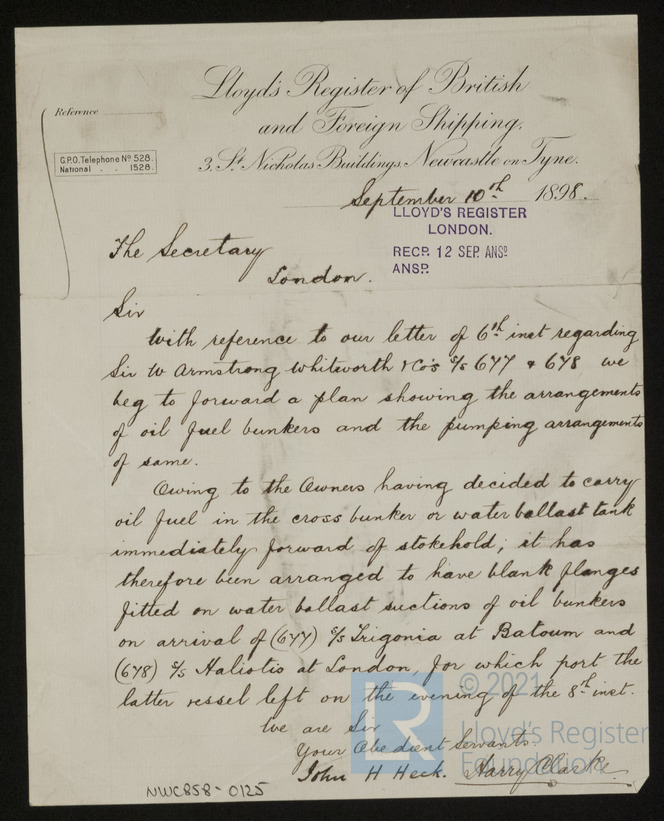 Lloyd's Register of British
and Foreign Shipping.
3, St Nicholas Buildings, Newcastle on Tyne.
Reference
G.P.O. Telephone No 528.
National . . 1528.
September 10th 1898.
LLOYD'S REGISTER
LONDON.
RECD. 12 SEP. ANSD
ANSD.
The Secretary
London.
Sir
With reference to our letter of 6th inst regarding
Sir W Armstrong Whitworth & Co's S/S 677 & 678 we
beg to forward a plan showing the arrangements
of oil fuel bunkers and the pumping arrangements
of same.
Owing to the Owners having decided to carry
oil fuel in the cross bunker or water ballast tank
immediately forward of stokehold; it has
therefore been arranged to have blank flanges
fitted on water ballast suctions of oil bunkers
on arrival of (677) S/S Trigonia at Batoum and
(678) S/S Haliotis at London, for which port the
latter vessel left on the evening of the 8th inst.
We are Sir
Your Obedient Servants.
John H Heck. Harry Clarke
NWC858-0125
© 2021
LR
Lloyd's Register
Foundation